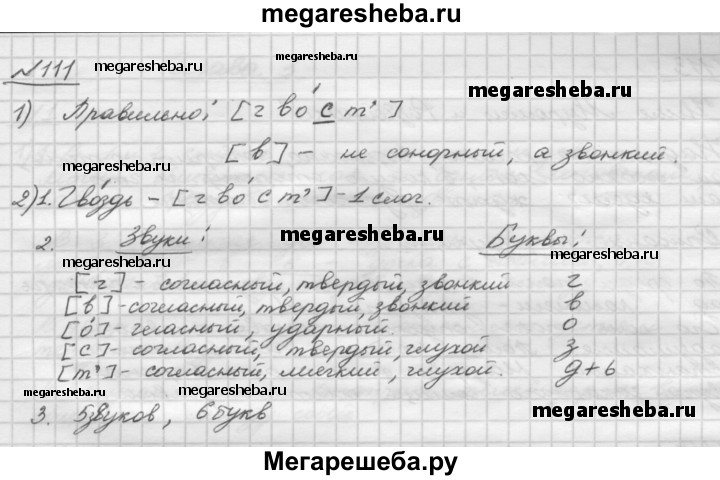 megaresheba.ru
№111 megaresheba.ru megaresheba.ru
1) Правильно: [г во́ с т']
[в] – не сонорный, а звонкий.
megaresheba.ru megaresheba.ru
2) 1. Гвоздь – [г во́ с т'] – 1 слог.
2. Звуки: megaresheba.ru Буквы:
[г] – согласный, твердый, звонкий г
[в] – согласный, твердый, звонкий в
[о́] – гласный, ударный. о
[с] – согласный, твердый, глухой з
[т'] – согласный, мягкий, глухой. д+ь
megaresheba.ru megaresheba.ru megaresheba.ru
3. 5 звуков, 6 букв megaresheba.ru
Мегарешеба.ру